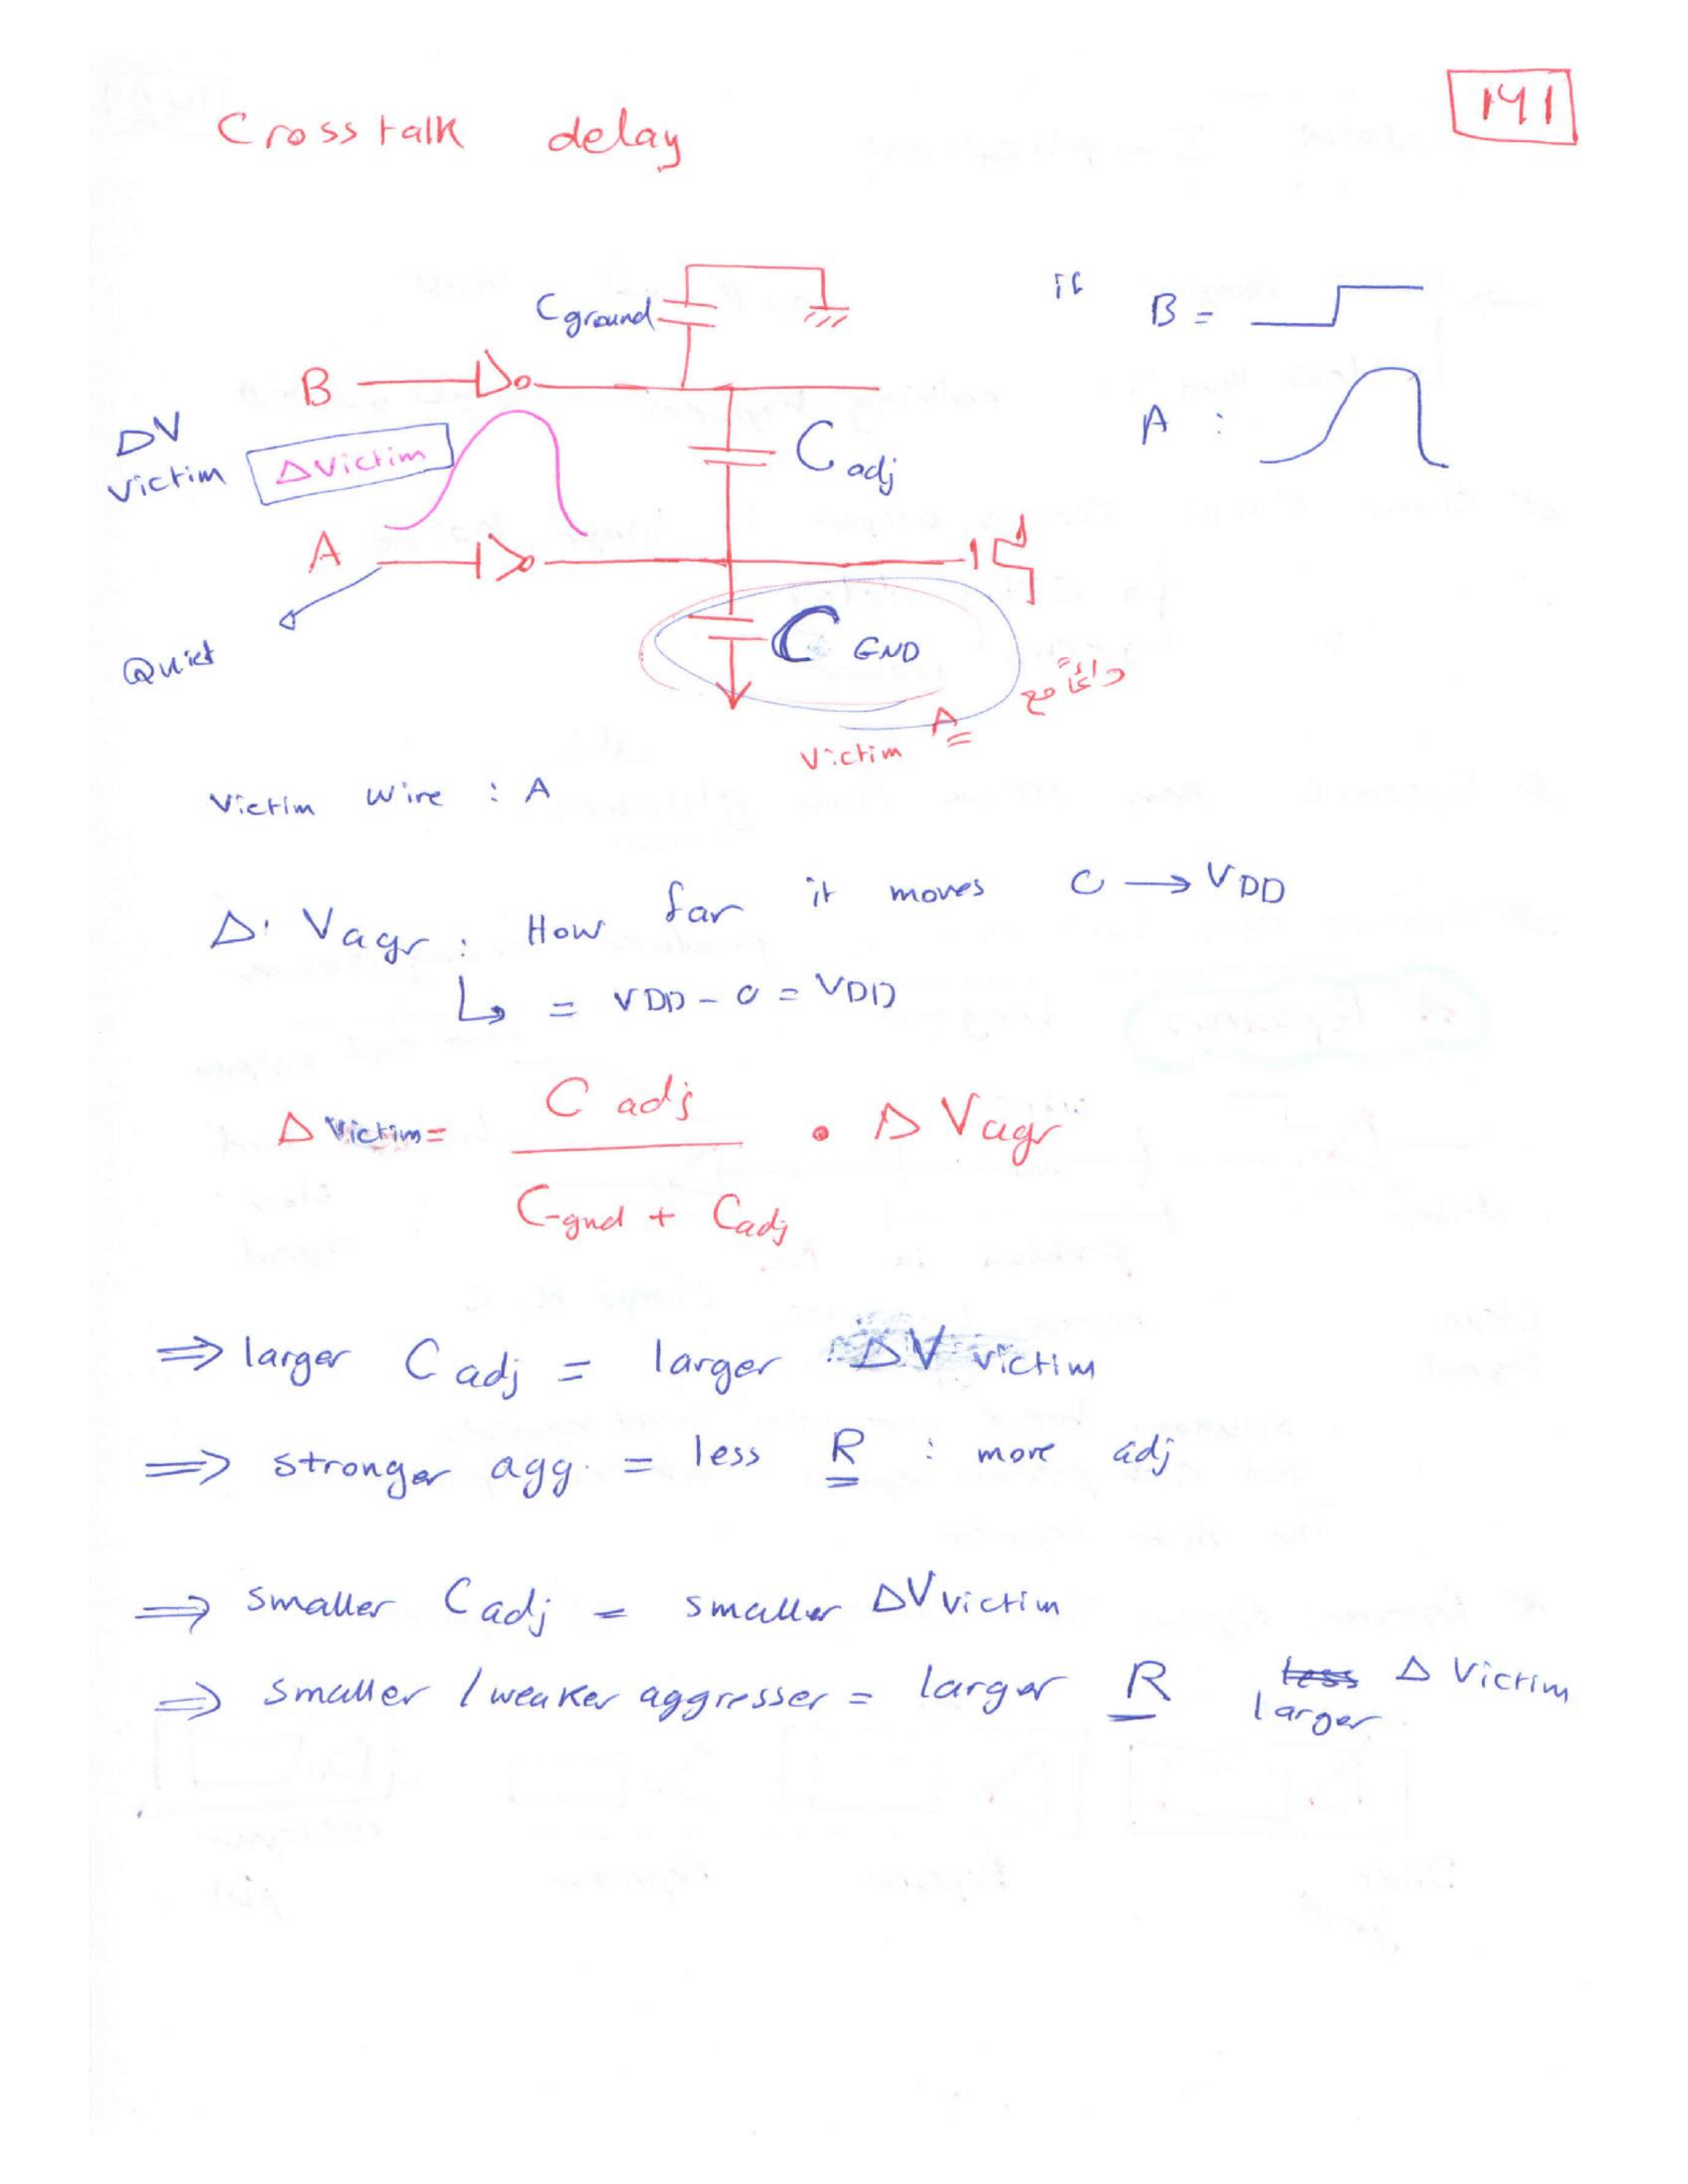 141
Crosstalk delay
if
B =
A :
Cground
B
C adj
DV
victim
ΔVictim
A
Quiet
C GND
دائماً مع
Victim A
Victim Wire : A
Δ Vagr : How far it moves 0 → VDD
↳ = VDD - 0 = VDD
Δ Victim = C adj / (C-gnd + Cadj) • Δ Vagr
⇒ larger C adj = larger ΔV victim
⇒ stronger agg. = less R : more adj
⇒ smaller C adj = smaller ΔV victim
⇒ smaller / weaker aggresser = larger R less Δ Victim
larger